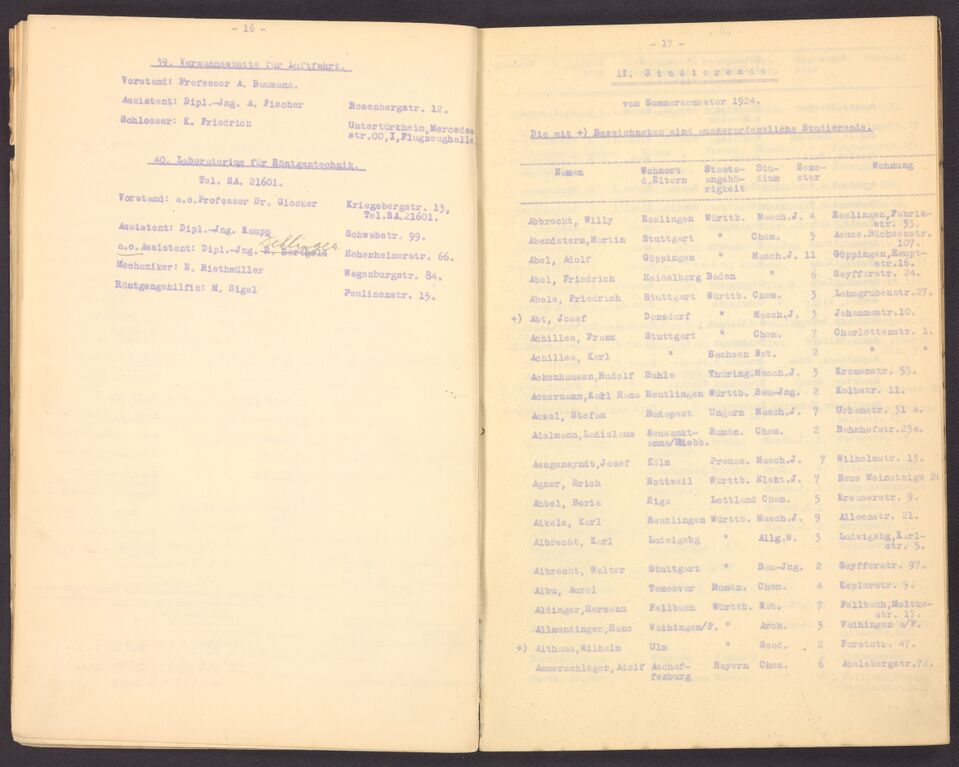 - 16 -
39. Versuchsstätte für Luftfahrt.
Vorstand: Professor A. Baumann.
Assistent: Dipl.-Jng. A. Fischer Rosenbergstr. 12.
Schlosser: K. Friedrich Untertürkheim,Mercedes-
str.00,I,Flugzeughalle.
40. Laboratorium für Röntgentechnik.
Tel. SA. 21601.
Vorstand: a.o.Professor Dr. Glocker Kriegsbergstr. 13,
Tel.SA.21601.
Assistent: Dipl.-Jng. Kaupp Schwabstr. 99.
a.o.Assistent: Dipl.-Jng. R. Berthold Hohenheimerstr. 66.
Mechaniker: E. Riethmüller Wagenburgstr. 84.
Röntgengehilfin: M. Sigel Paulinenstr. 15.
- 17 -
IX. Studierende
vom Sommersemester 1924.
Die mit +) Bezeichneten sind ausserordentliche Studierende.
Namen Wohnort Staats- Stu- Seme- Wohnung
d.Eltern angehö- dium ster
rigkeit
Abbrecht, Willy Reutlingen Württb. Masch.J. 4 Reutlingen,Fabrik-
str. 33.
Abendstern,Martin Stuttgart " Chem. 5 Aeusz.Büchsenstr.
107.
Abel, Adolf Göppingen " Masch.J. 11 Göppingen,Haupt-
str.16.
Abel, Friedrich Heidelberg Baden " 6 Seyfferstr. 24.
Abele, Friedrich Stuttgart Württb. Chem. 3 Lehngrubenstr.27.
+) Abt, Josef Donzdorf " Masch.J. 3 Johannesstr.10.
Achilles, Franz Stuttgart " Chem. 7 Charlottenstr. 1.
Achilles, Karl " Sachsen Nat. 2 " "
Ackenhausen,Rudolf Ruhla Thüring.Masch.J. 3 Kronenstr. 53.
Ackermann,Karl Hans Reutlingen Württb. Bau-Jng. 2 Kolbstr. 11.
Aczel, Stefan Budapest Ungarn Masch.J. 7 Urbanstr. 31 a.
Adelmann,Ladislaus Neusankt- Rumän. Chem. 2 Bahnhofstr.23a.
anna/Siebb.
Aengeneyndt,Josef Köln Preuss. Masch.J. 7 Wilhelmstr. 13.
Agner, Erich Rottweil Württb. Elekt.J. 7 Neue Weinsteige 20
Ahbel, Boris Riga Lettland Chem. 5 Kreuserstr. 9.
Aikele, Karl Reutlingen Württb. Masch.J. 9 Alleenstr. 21.
Albrecht, Karl Ludwigsbg " Allg.W. 3 Ludwigsbg,Karl-
str. 5.
Albrecht, Walter Stuttgart " Bau-Jng. 2 Seyfferstr. 97.
Albu, Aurel Temesvar Rumän. Chem. 4 Keplerstr. 9.
Aldinger,Hermann Fellbach Württb. Nat. 7 Fellbach,Moltke-
str. 17.
Allmendinger,Hans Vaihingen/F. " Arch. 3 Vaihingen a/F.
+) Althaus,Wilhelm Ulm " Geod. 2 Forststr. 47.
Ammerschläger,Adolf Aschaf- Bayern Chem. 6 Abelsbergstr.72.
fenburg